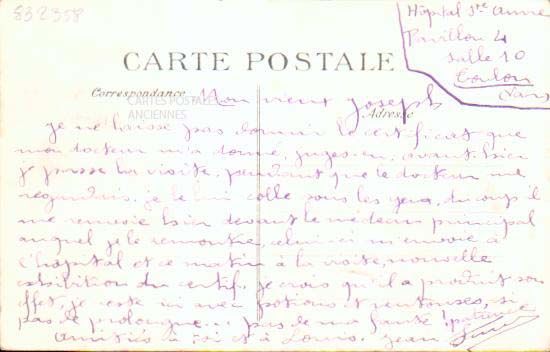 832358
Hôpital Ste Anne
Pavillon 4
salle 10
Toulon
(Var)
CARTE POSTALE
Correspondance
Adresse
CARTES POSTALES
ANCIENNES
Mon vieux Joseph
je ne laisse pas dormir le certificat que
mon docteur m'a donné, juges-en, avant hier
je passe la visite, pendant que le docteur me
regardait, je le lui colle sous les yeux, du coup il
me renvoie hier devant le médecin principal
auquel je le remontre, celui-ci m'envoie à
l'hôpital et ce matin à la visite, nouvelle
exhibition du certif. je crois qu'il a produit son
effet, je reste ici avec potions et ventouses, si
pas de prolongue... pas de ma faute! patience
amitiés à toi et à Louis. Jean